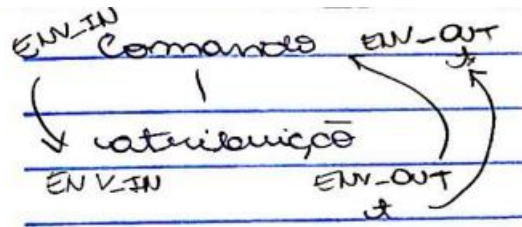 ENV_IN Comando ENV_OUT
t
atribuição
ENV_IN ENV_OUT
t